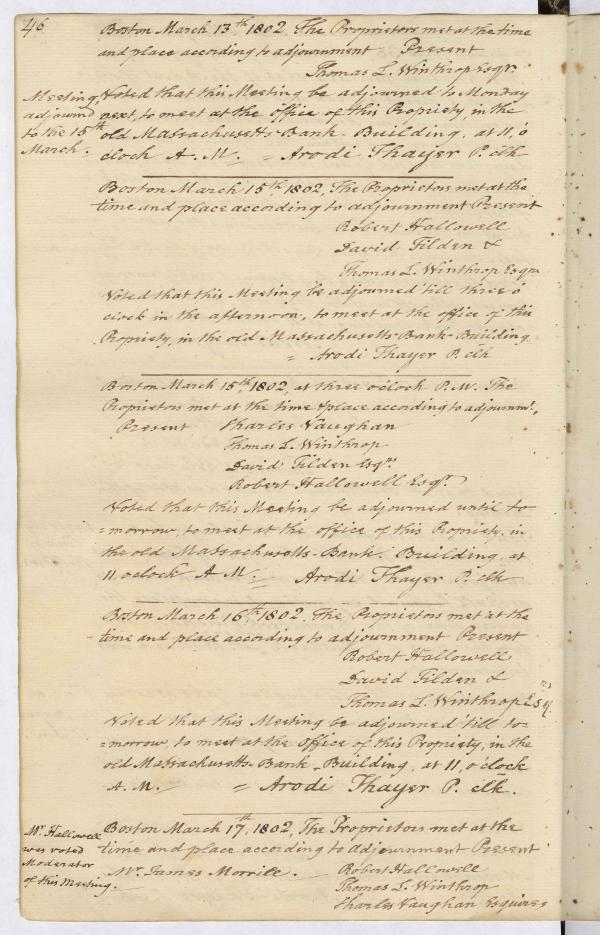 46
Boston March 13th 1802, The Proprietors met at the time
and place according to adjournment Present
Thomas L. Winthrop Esqr.
Meeting
adjournd
to the 15th
March.
Voted that this Meeting be adjourned to Monday
next, to meet at the office of this Propriety in the
old Massachusetts-Bank-Building, at 11, o
clock A. M. = Arodi Thayer P. clk
Boston March 15th 1802, The Proprietors met at the
time and place according to adjournment Present
Robert Hallowell
David Tilden &
Thomas L. Winthrop Esqrs
Voted that this Meeting be adjourned 'till three o
clock in the afternoon, to meet at the office of this
Propriety, in the old Massachusetts-Bank-Building.
= Arodi Thayer P. clk
Boston March 15th 1802, at three oclock P. M. The
Proprietors met at the time & place according to adjournmt,
Present Charles Vaughan
Thomas L. Winthrop
David Tilden Esqrs
Robert Hallowell Esqr
Voted that this Meeting be adjourned until to=
=morrow, to meet at the office of this Propriety, in
the old Massachusetts-Bank-Building, at
11, oclock A M. = Arodi Thayer P. clk
Boston March 16th 1802, The Proprietors met at the
time and place according to adjournment Present
Robert Hallowell
David Tilden &
Thomas L. Winthrop Esqrs.
Voted that this Meeting be adjourned 'till to=
=morrow, to meet at the Office of this Propriety, in the
old Massachusetts-Bank-Building, at 11, o'clock
A. M. = Arodi Thayer P. clk.
Boston March 17th, 1802, The Proprietors met at the
time and place according to adjournment Present
Mr. Hallowell
was voted
Moderator
of this Meeting.
Mr. James Morrill. Robert Hallowell
Thomas L. Winthrop
Charles Vaughan Esquires